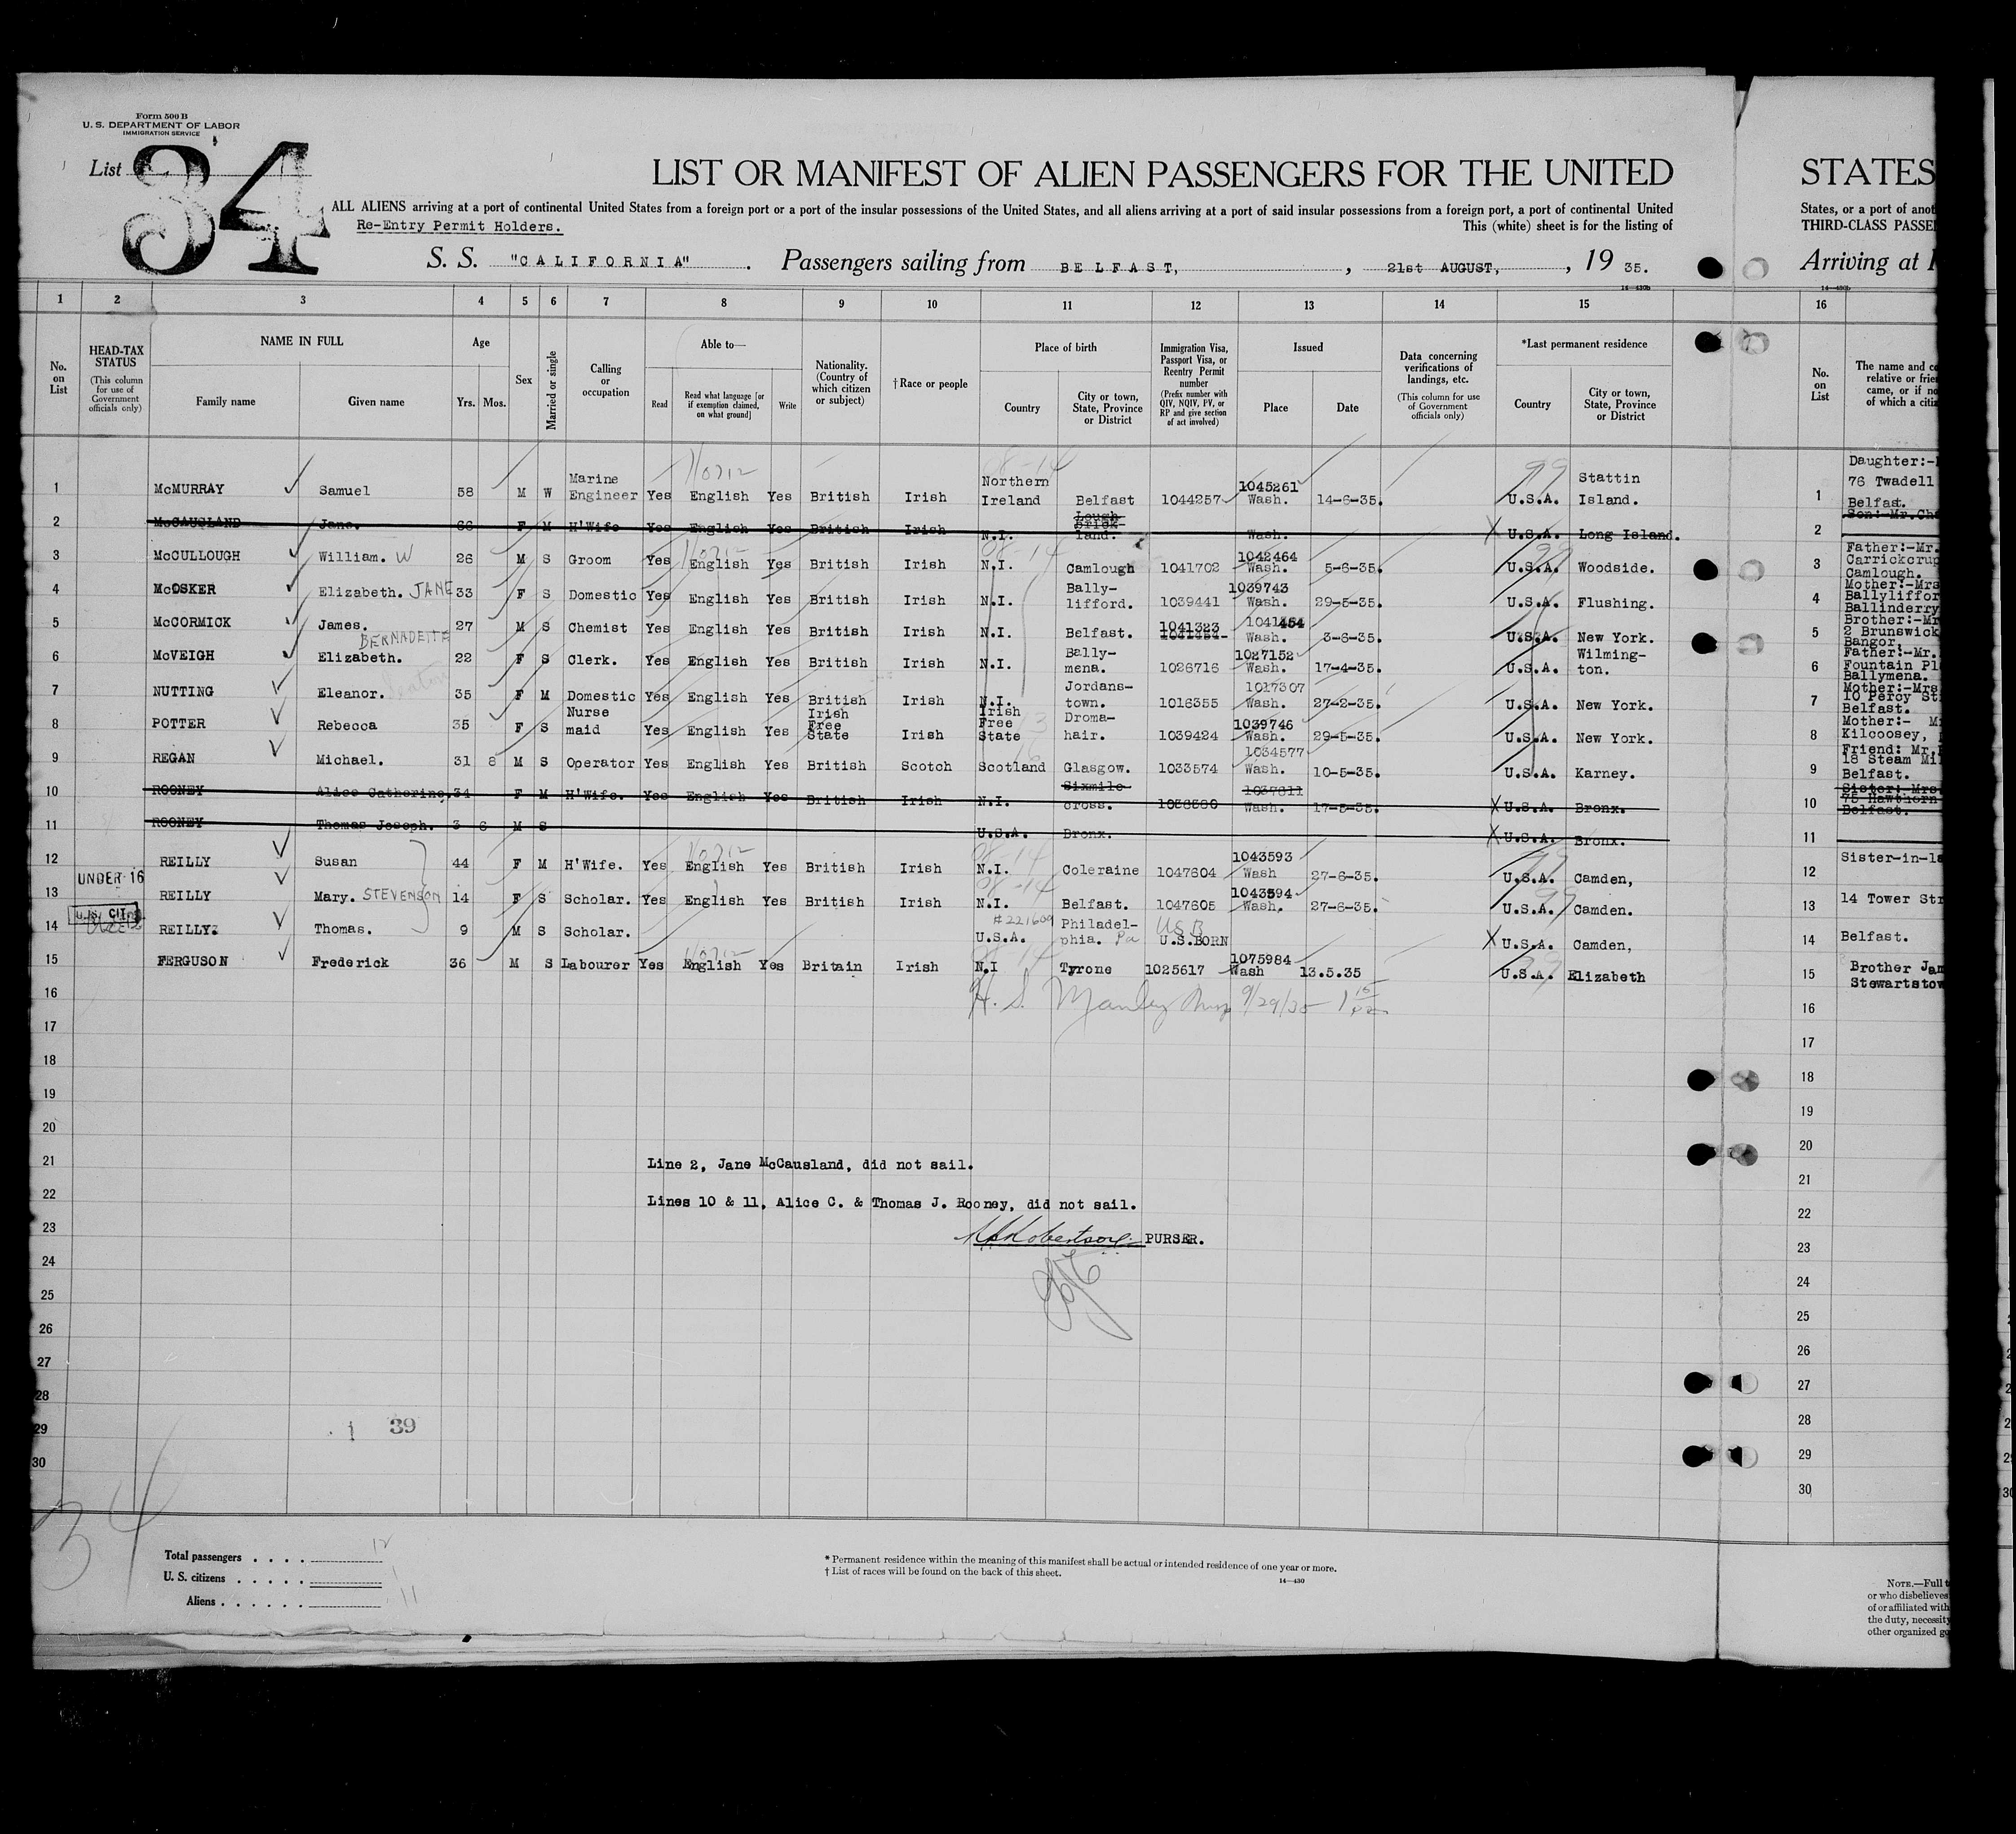 Form 500 B
U. S. DEPARTMENT OF LABOR
IMMIGRATION SERVICE
List 34
LIST OR MANIFEST OF ALIEN PASSENGERS FOR THE UNITED
STATES
ALL ALIENS arriving at a port of continental United States from a foreign port or a port of the insular possessions of the United States, and all aliens arriving at a port of said insular possessions from a foreign port, a port of continental United
States, or a port of anot
Re-Entry Permit Holders.
This (white) sheet is for the listing of
THIRD-CLASS PASSE
S. S. "CALIFORNIA". Passengers sailing from BELFAST, , 21st AUGUST, , 19 35.
Arriving at
14—430b
14—430b
1 2 3 4 5 6 7 8 9 10 11 12 13 14 15 16
No. on List
HEAD-TAX STATUS
(This column for use of Government officials only)
NAME IN FULL
Family name
Given name
Age
Yrs. Mos.
Sex
Married or single
Calling or occupation
Able to—
Read
Read what language [or if exemption claimed, on what ground]
Write
Nationality. (Country of which citizen or subject)
†Race or people
Place of birth
Country
City or town, State, Province or District
Immigration Visa, Passport Visa, or Reentry Permit number
(Prefix number with QIV, NQIV, PV, or RP and give section of act involved)
Issued
Place
Date
Data concerning verifications of landings, etc.
(This column for use of Government officials only)
*Last permanent residence
Country
City or town, State, Province or District
No. on List
The name and c
relative or frie
came, or if no
of which a citiz
1 McMURRAY Samuel 58 M W Marine Engineer Yes English Yes British Irish Northern Ireland Belfast 1044257 1045261 Wash. 14-6-35. U.S.A. Stattin Island. 1 Daughter:- 76 Twadell Belfast.
2 McCAUSLAND Jane. 66 F M H'Wife Yes English Yes British Irish N.I. Lough Brick- land. Wash. X U.S.A. Long Island. 2 Son:-Mr.Cha
3 McCULLOUGH William. W 26 M S Groom Yes English Yes British Irish N.I. Camlough 1041702 1042464 Wash. 5-6-35. U.S.A. Woodside. 3 Father:-Mr. Carrickcrup Camlough.
4 McOSKER Elizabeth. JANE 33 F S Domestic Yes English Yes British Irish N.I. Bally- lifford. 1039441 1039743 Wash. 29-5-35. U.S.A. Flushing. 4 Mother:-Mrs Ballyliffor Ballinderry
5 McCORMICK James. 27 M S Chemist Yes English Yes British Irish N.I. Belfast. 1041323 1041454 1041454 Wash. 3-6-35. U.S.A. New York. 5 Brother:-Mr 2 Brunswick Bangor.
6 McVEIGH Elizabeth. BERNADETTE 22 F S Clerk. Yes English Yes British Irish N.I. Bally- mena. 1026716 1027152 Wash. 17-4-35. U.S.A. Wilming- ton. 6 Father:-Mr. Fountain Pl Ballymena.
7 NUTTING Eleanor. 35 F M Domestic Yes English Yes British Irish N.I. Jordans- town. 1016355 1017307 Wash. 27-2-35. U.S.A. New York. 7 Mother:-Mrs 10 Percy St Belfast.
8 POTTER Rebecca 35 F S Nurse maid Yes English Yes Irish Free State Irish Irish Free State Droma- hair. 1039424 1039746 Wash. 29-5-35. U.S.A. New York. 8 Mother:- M Kilcoosey,
9 REGAN Michael. 31 8 M S Operator Yes English Yes British Scotch Scotland Glasgow. 1033574 1034577 Wash. 10-5-35. U.S.A. Karney. 9 Friend: Mr. 18 Steam Mi Belfast.
10 ROONEY Alice Catherine. 34 F M H'Wife. Yes English Yes British Irish N.I. Sixmile cross. 1037811 Wash. 17-5-35. X U.S.A. Bronx. 10 Sister: Mrs 75 Hawthorn Belfast.
11 ROONEY Thomas Joseph. 3 6 M S U.S.A. Bronx. X U.S.A. Bronx. 11
12 REILLY Susan 44 F M H'Wife. Yes English Yes British Irish N.I. Coleraine 1047604 1043593 Wash 27-6-35. U.S.A. Camden, 12 Sister-in-la
13 UNDER 16 REILLY Mary. STEVENSON 14 F S Scholar. Yes English Yes British Irish N.I. Belfast. 1047605 1043594 Wash. 27-6-35. U.S.A. Camden. 13 14 Tower Str
14 U.S. CIT. REILLY. Thomas. 9 M S Scholar. #221609 U.S.A. Philadel- phia. Pa USB U.S.BORN X U.S.A. Camden, 14 Belfast.
15 FERGUSON Frederick 36 M S Labourer Yes English Yes Britain Irish N.I Tyrone 1025617 1075984 Wash 13.5.35 U.S.A. Elizabeth 15 Brother Jam Stewartstow
16 16
17 17
18 18
19 19
20 20
21 Line 2, Jane McCausland, did not sail. 21
22 Lines 10 & 11, Alice C. & Thomas J. Rooney, did not sail. 22
23 Robertson PURSER. 23
24 24
25 25
26 26
27 27
28 28
29 39 29
30 30
34
Total passengers . . . . 12
U. S. citizens . . . . . 1
Aliens . . . . . . 11
* Permanent residence within the meaning of this manifest shall be actual or intended residence of one year or more.
† List of races will be found on the back of this sheet.
14—430
NOTE.—Full t
or who disbelieves
of or affiliated with
the duty, necessity
other organized go